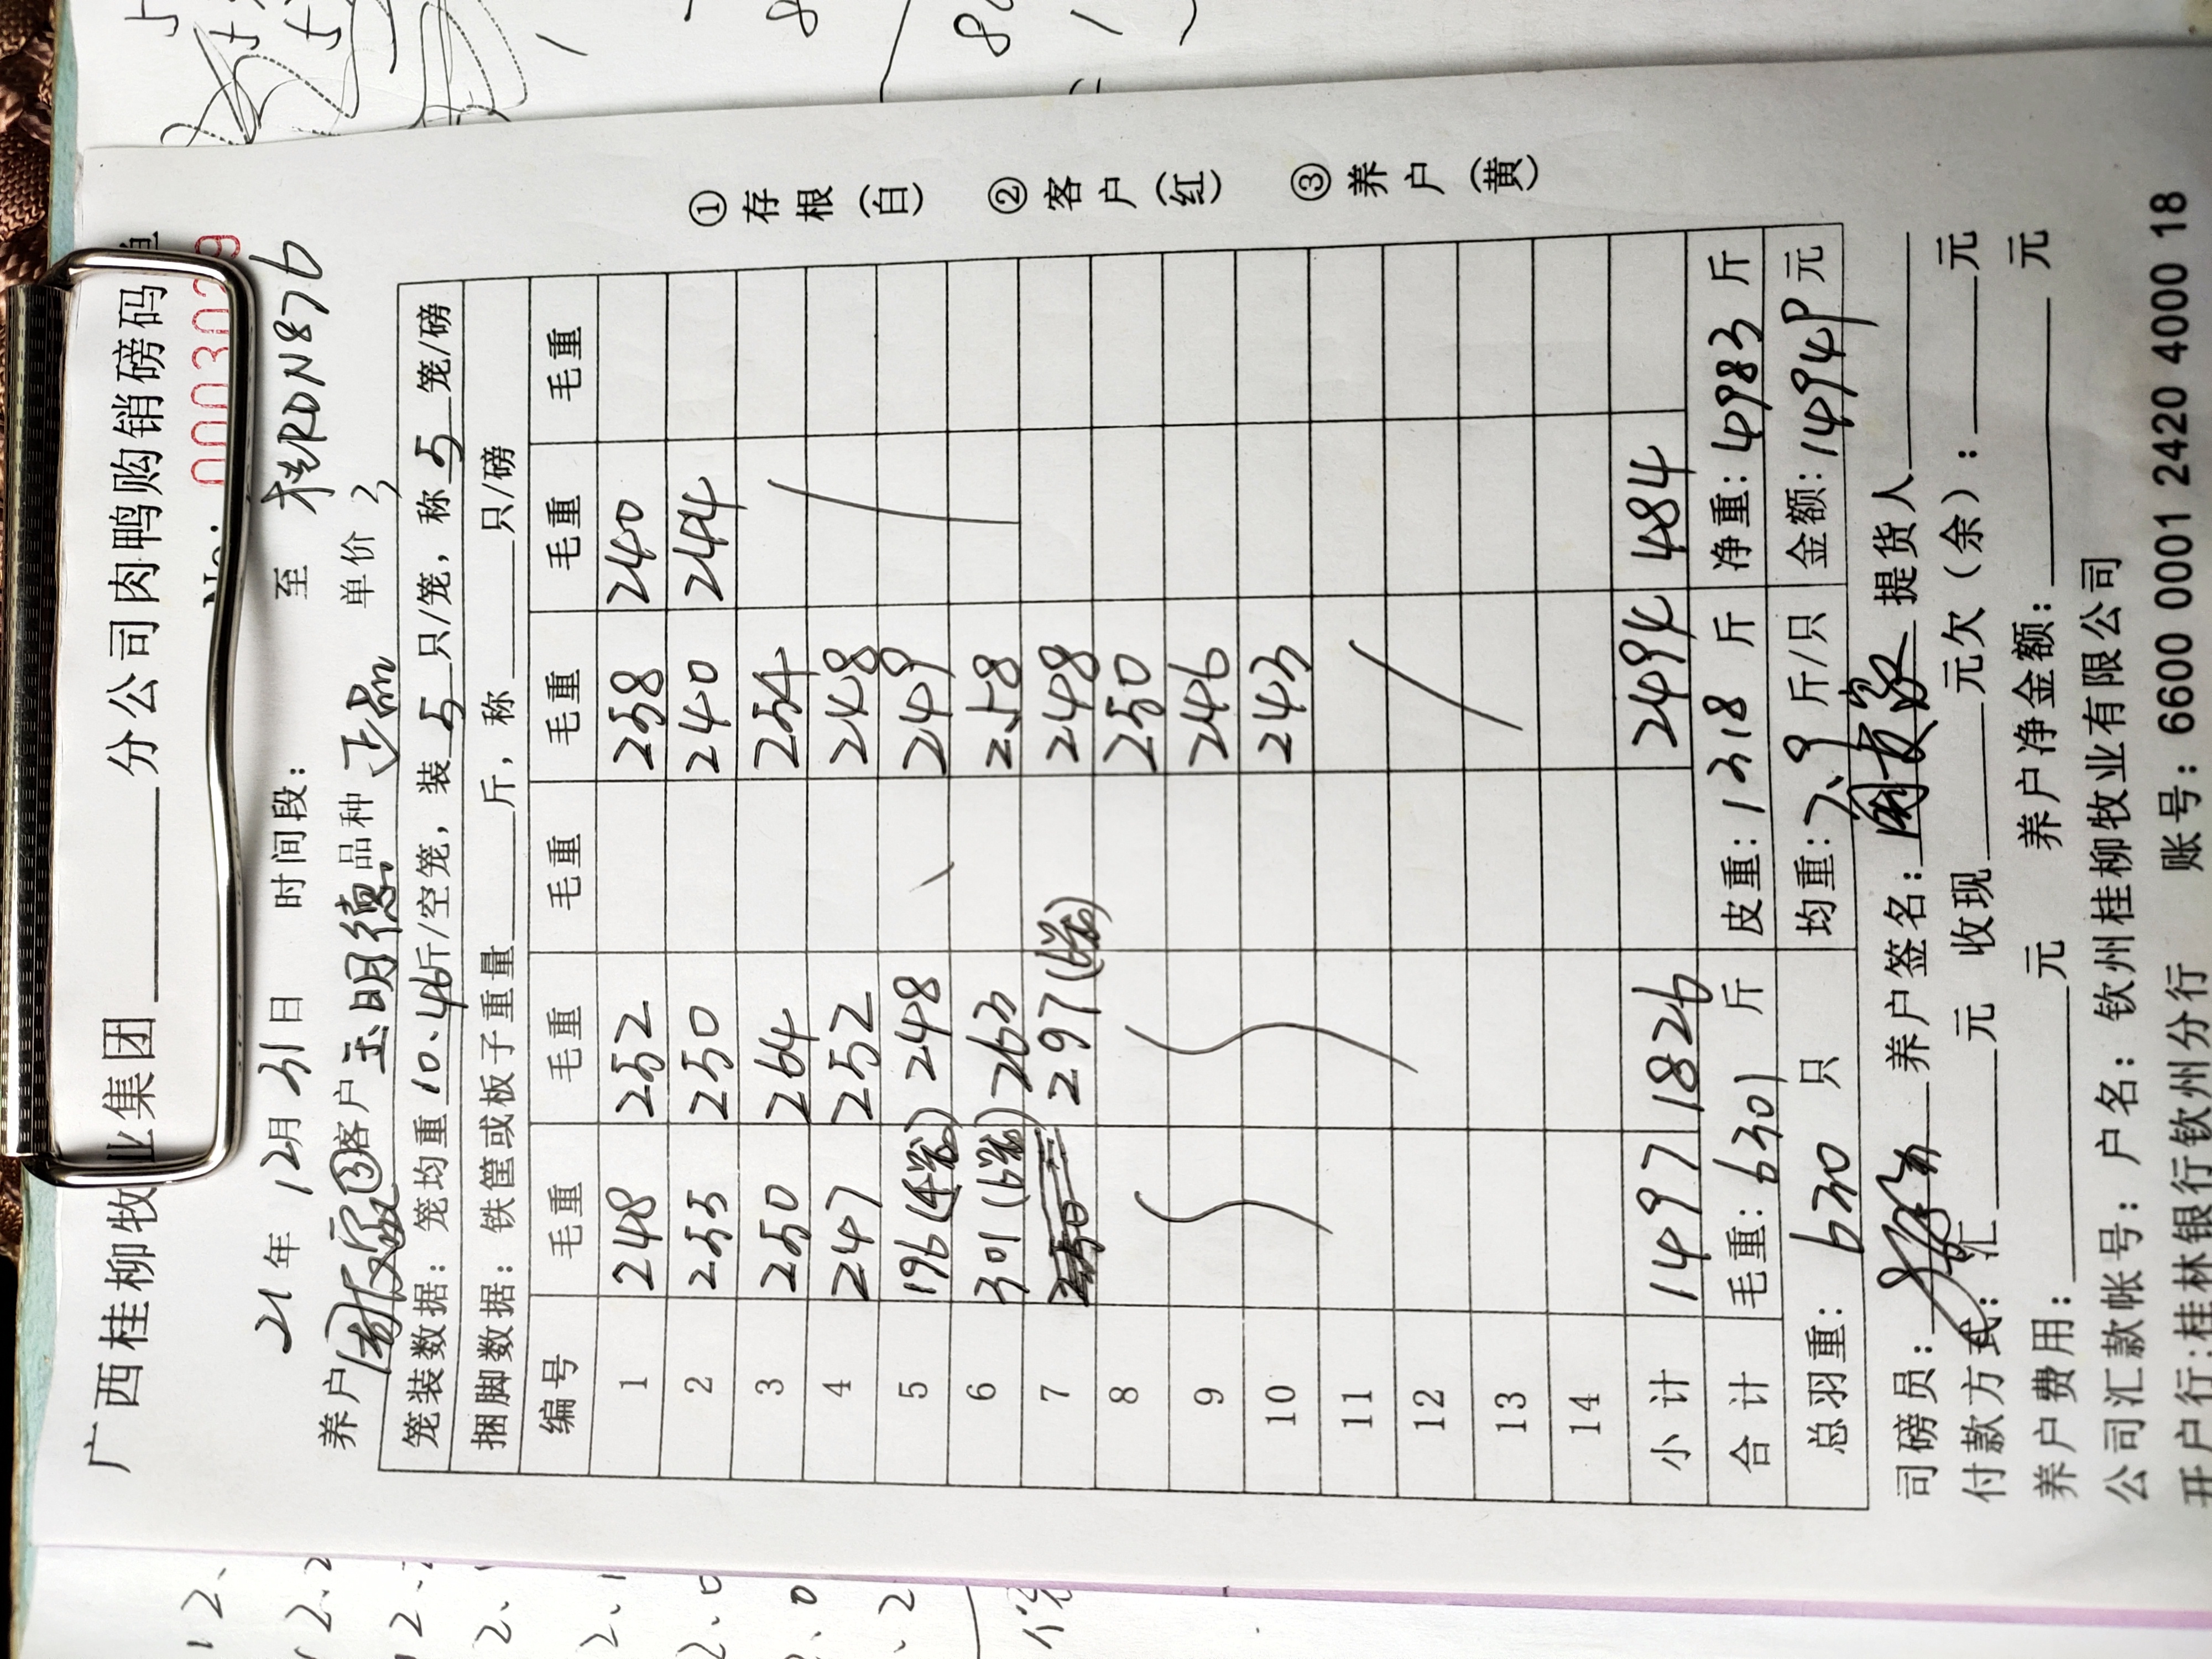 广西桂柳牧业集团______分公司肉鸭购销磅码
000302 9
21年12月31日 时间段： 至 桂RDN876
养户 客户 玉明德 品种 正品 单价 3
笼装数据：笼均重10.46斤/空笼，装5只/笼，称5笼/磅
捆脚数据：铁筐或板子重量____斤，称____只/磅
编号 毛重 毛重 毛重 毛重 毛重 毛重
1 248 252 258 240
2 255 250 240 244
3 250 264 254
4 247 252 248
5 196(4笼) 248 249
6 301(6笼) 263 258
7 297(6笼) 248
8 250
9 246
10 243
11
12
13
14
小计 1497 1826 2494 484
合计 毛重：6301斤 皮重：1318斤 净重：4983斤
总羽重：630只 均重：7.9斤/只 金额：14949元
司磅员： 养户签名： 提货人
付款方式：汇____元 收现____元欠（余）：____元
养户费用：____元 养户净金额：____元
公司汇款帐号：户名：钦州桂柳牧业有限公司
开户行:桂林银行钦州分行 账号：6600 0001 2420 4000 18
①存根（白） ②客户（红） ③养户（黄）